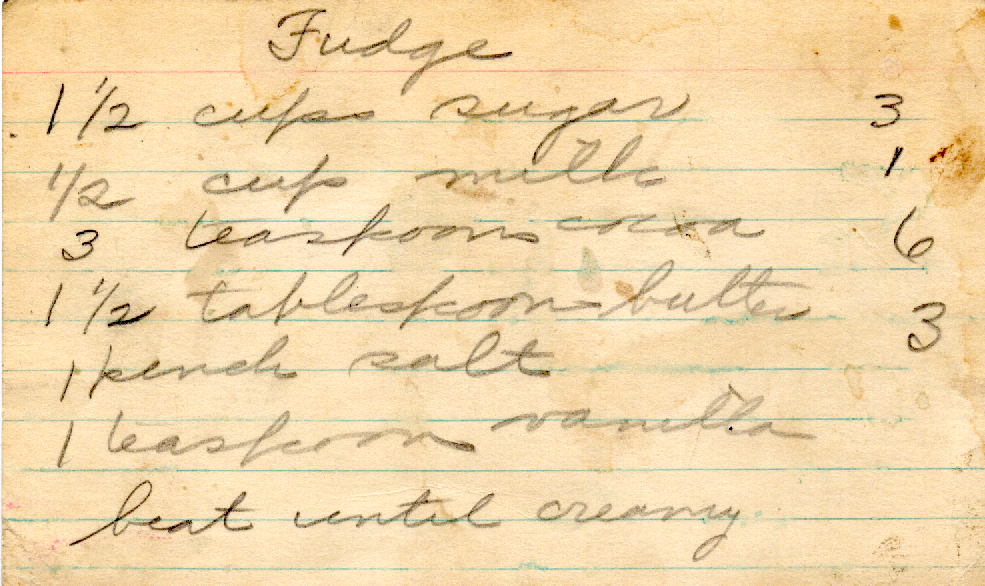 Fudge
1 1/2 cups sugar 3
1/2 cup milk 1
3 teaspoons cocoa 6
1 1/2 tablespoons butter 3
1 pinch salt
1 teaspoon vanilla
beat until creamy